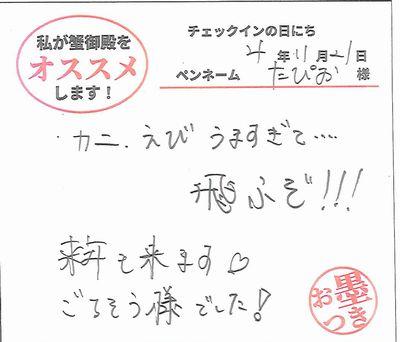 私が蟹御殿を
オススメ
します!
チェックインの日にち
4年11月21日
ペンネーム たぴお 様
・カニ、えび うますぎて・・・・
飛ぶぞ!!!
来年も来ます♡
ごちそう様でした!
お墨つき